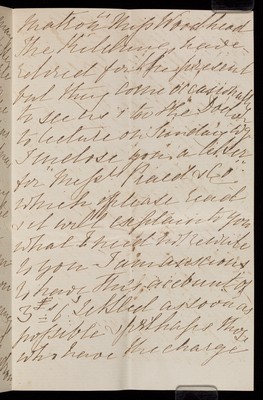 matron Miss Woodhead
The Kitchings have
retired for the present
but they come occasionally
to see us & to the Doctor
to lecture on Sunday
I inclose you a letter
for Miss
which please read
as it will explain to you
what I need not rewrite
to you - I am anxious
to have this account of
3 settled as soon as
possible perhaps those
who have the charge